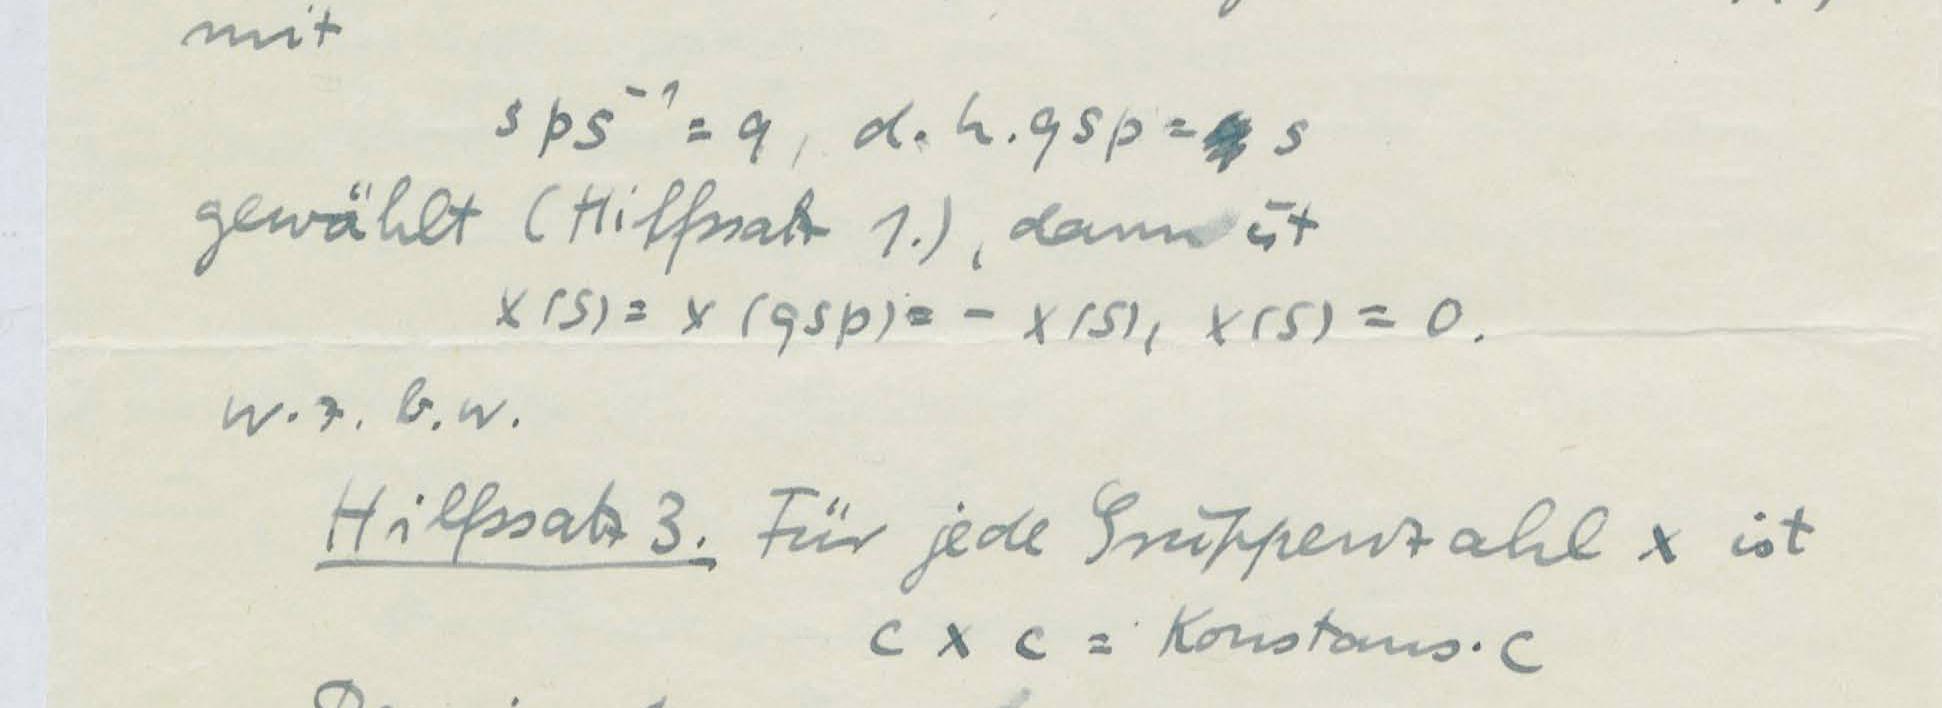 mit
s p s⁻¹ = q, d.h. q s p = s
gewählt (Hilfssatz 1.), dann ist
x(s) = x(qsp) = - x(s), x(s) = 0.
w.z.b.w.
Hilfssatz 3. Für jede Gruppenzahl x ist
c x c = Konstans·c